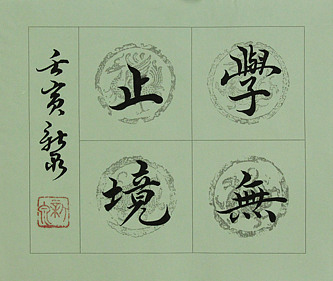 學無
止境
壬寅新泉